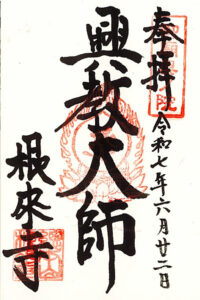 奉拝
令和七年六月廿二日
興教大師
根来寺